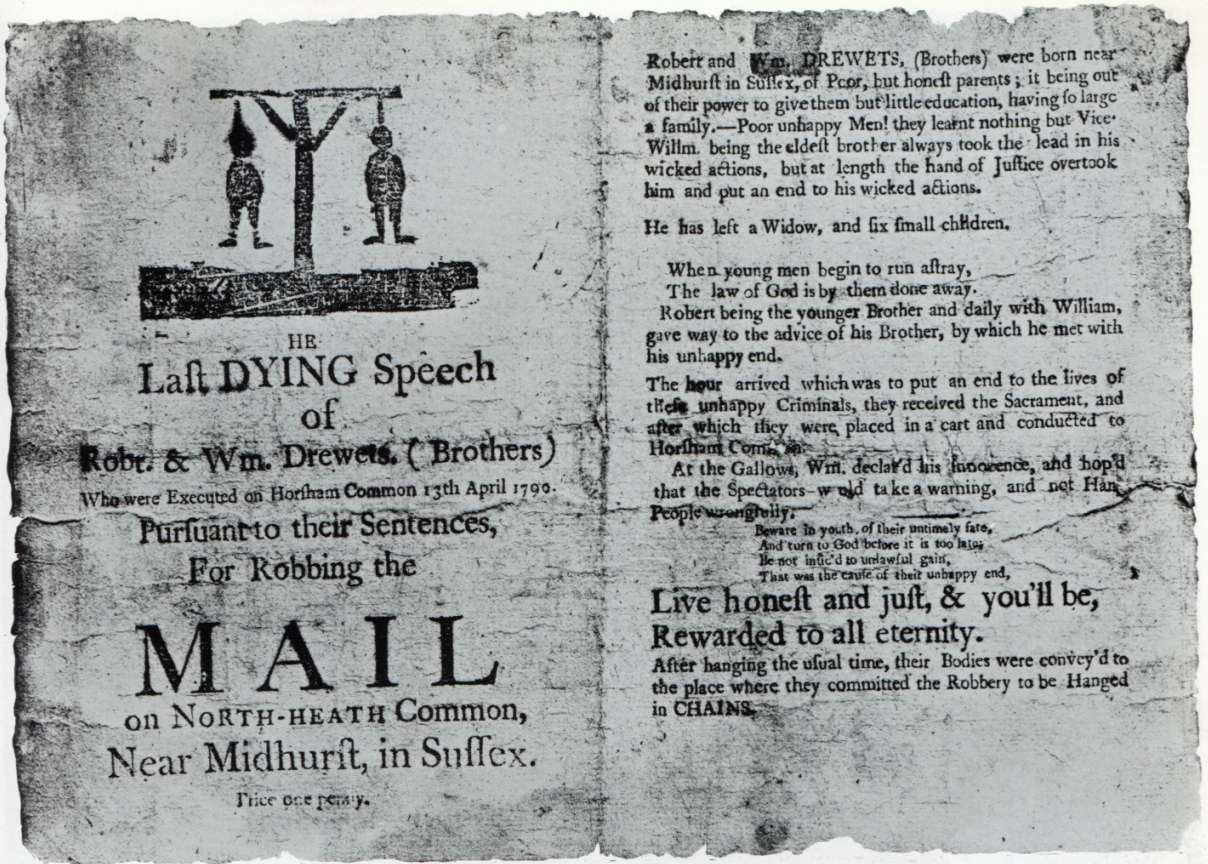 HE
Laſt DYING Speech
of
Robt. & Wm. Drewets. (Brothers)
Who were Executed on Horſham Common 13th April 1790.
Purſuant to their Sentences,
For Robbing the
MAIL
on NORTH-HEATH Common,
Near Midhurſt, in Suſſex.
Price one penny.
Robert and Wm. DREWETS, (Brothers) were born near
Midhurſt in Suſſex, of Pcor, but honeſt parents; it being out
of their power to give them but little education, having ſo large
a family.—Poor unhappy Men! they learnt nothing but Vice.
Willm. being the eldeſt brother always took the lead in his
wicked actions, but at length the hand of Juſtice overtook
him and put an end to his wicked actions.
He has left a Widow, and ſix ſmall children.
When young men begin to run aſtray,
The law of God is by them done away.
Robert being the younger Brother and daily with William,
gave way to the advice of his Brother, by which he met with
his unhappy end.
The hour arrived which was to put an end to the lives of
theſe unhappy Criminals, they received the Sacrament, and
after which they were placed in a cart and conducted to
Horſham
At the Gallows, Wm. declar'd his Innocence, and hop'd
that the Spectators w uld take a warning, and not Han
People wrongfully.
Beware in youth of their untimely fate,
And turn to God before it is too late;
Be not intic'd to unlawful gain,
That was the cauſe of their unhappy end,
Live honeſt and juſt, & you'll be,
Rewarded to all eternity.
After hanging the uſual time, their Bodies were convey'd to
the place where they committed the Robbery to be Hanged
in CHAINS.